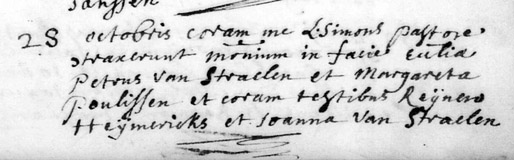 Janssen
28 octobris coram me L: Simons pastore
contraxerunt mōnium in facie Eccliæ
Petrus Van Straelen et Margareta
Poulissen et coram testibus Reÿnero
Heÿmericks et Joanna Van Straelen